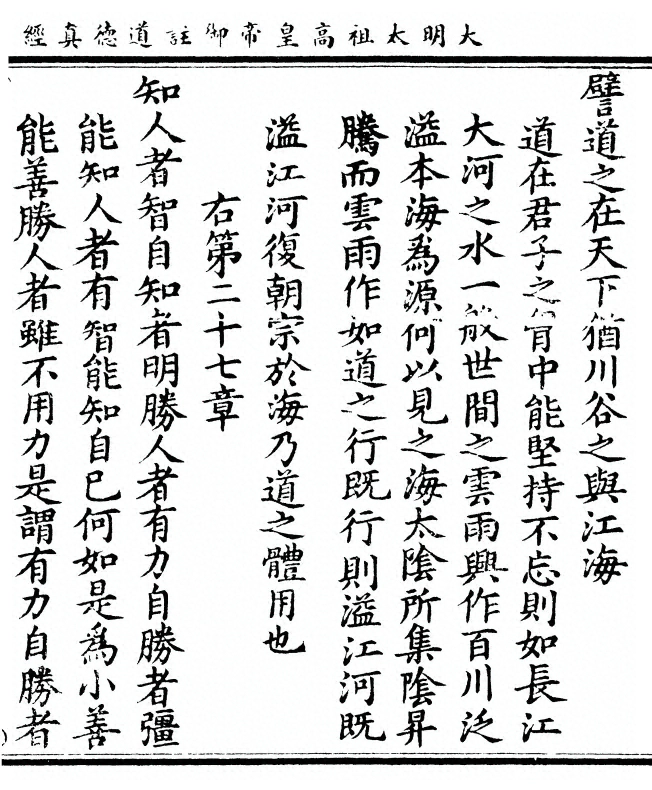 大明太祖高皇帝御註道德真經
譬道之在天下猶川谷之與江海
道在君子之胷中能堅持不忘則如長江
大河之水一般世間之雲雨興作百川泛
溢本海爲源何以見之海太陰所集陰昇
騰而雲雨作如道之行既行則溢江河既
溢江河復朝宗於海乃道之體用也
右第二十七章
知人者智自知者明勝人者有力自勝者彊
能知人者有智能知自已何如是爲小善
能善勝人者雖不用力是謂有力自勝者